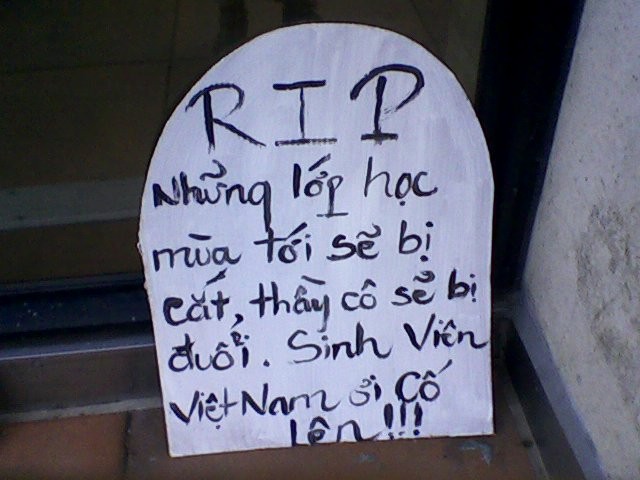 RIP
Những lớp học
mùa tới sẽ bị
cắt, thầy cô sẽ bị
đuổi. Sinh Viên
Việt Nam ơi Cố
lên!!!